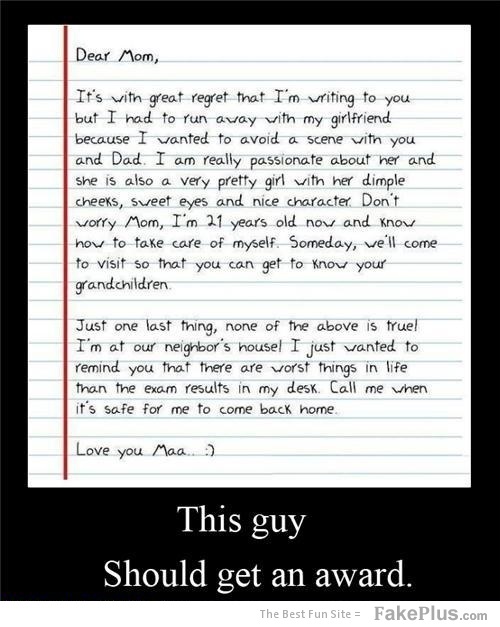 Dear Mom,
It's with great regret that I'm writing to you
but I had to run away with my girlfriend
because I wanted to avoid a scene with you
and Dad. I am really passionate about her and
she is also a very pretty girl with her dimple
cheeks, sweet eyes and nice character. Don't
worry Mom, I'm 21 years old now and know
how to take care of myself. Someday, we'll come
to visit so that you can get to know your
grandchildren.
Just one last thing, none of the above is true!
I'm at our neighbor's house! I just wanted to
remind you that there are worst things in life
than the exam results in my desk. Call me when
it's safe for me to come back home.
Love you Maa.. :)
This guy
Should get an award.
The Best Fun Site = FakePlus.com